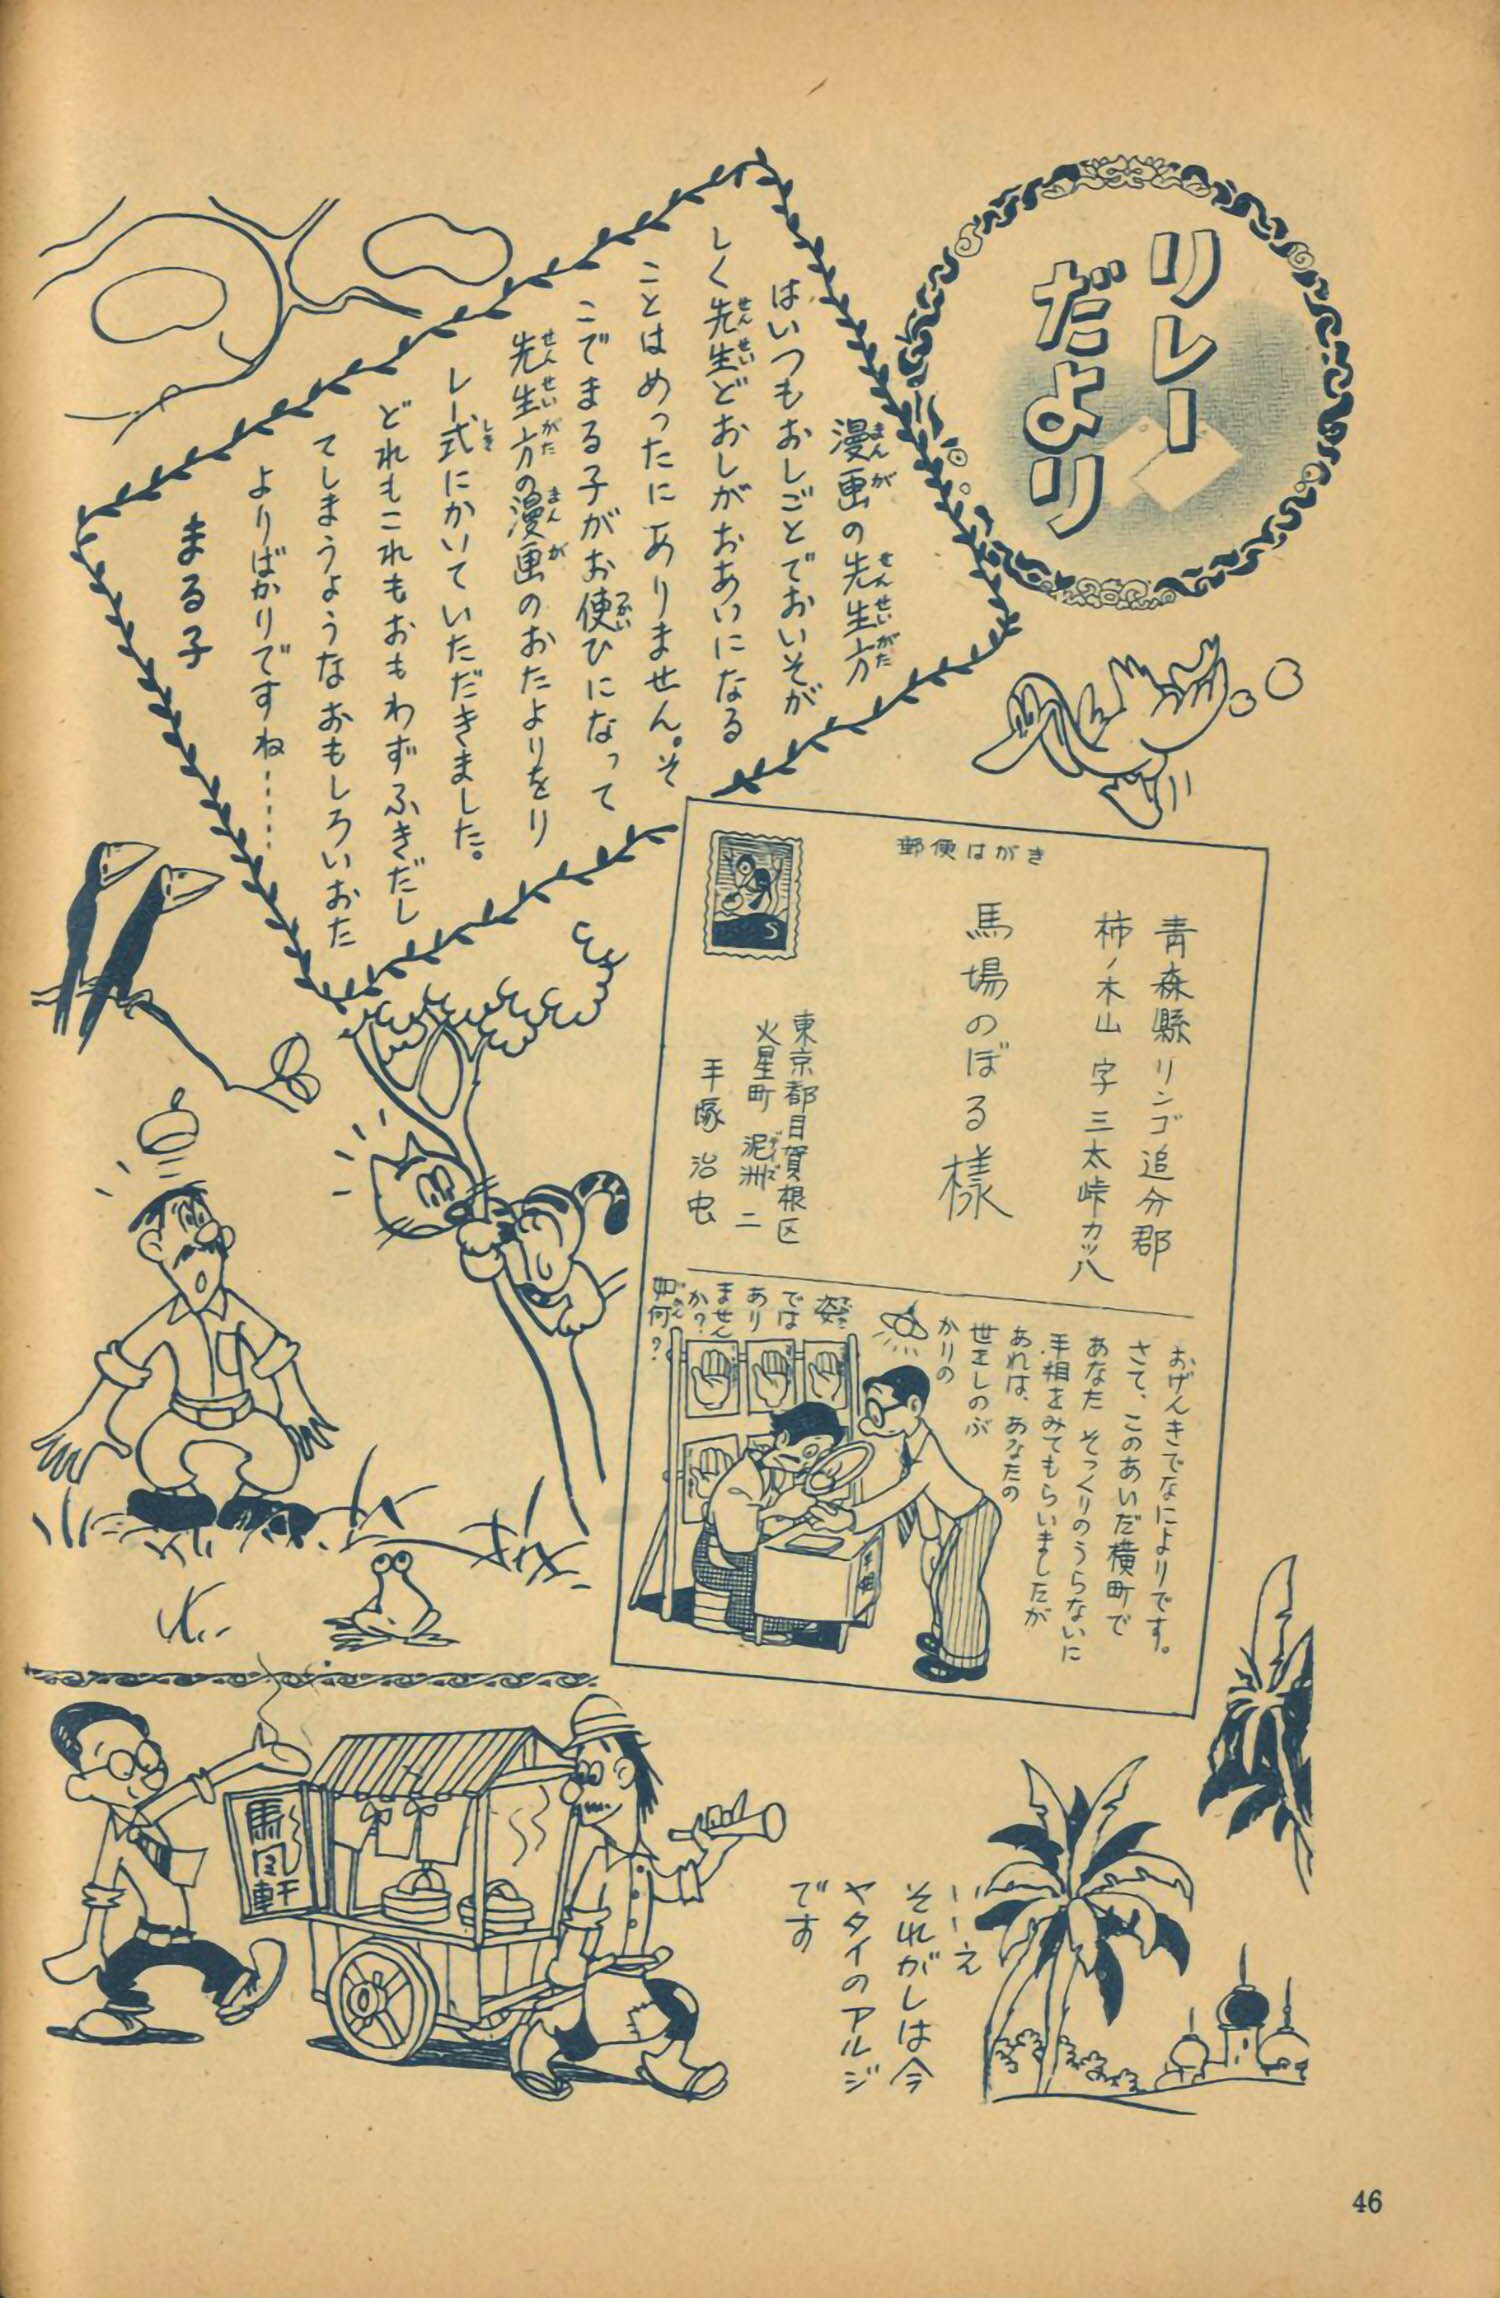 リレー
だより
漫画の先生方
はいつもおしごとでおいそが
しく先生どおしがおあいになる
ことはめったにありません。そ
こでまる子がお使ひになって
先生方の漫画のおたよりをリ
レー式にかいていただきました。
どれもこれもおもわずふきだし
てしまうようなおもしろいおた
よりばかりですね……
まる子
郵便はがき
青森縣リンゴ追分郡
柿ノ木山字三太峠カッ八
馬場のぼる様
5
東京都目賀根区
火星町泥洲二
手塚治虫
おげんきでなによりです。
さて、このあいだ横町で
あなたそっくりのうらないに
手相をみてもらいましたが
あれは、あなたの
世をしのぶ
かりの
姿
では
あり
ません
か?
如何?
手相
いーえ
それがしは今
ヤタイのアルジ
です
馬風軒
46